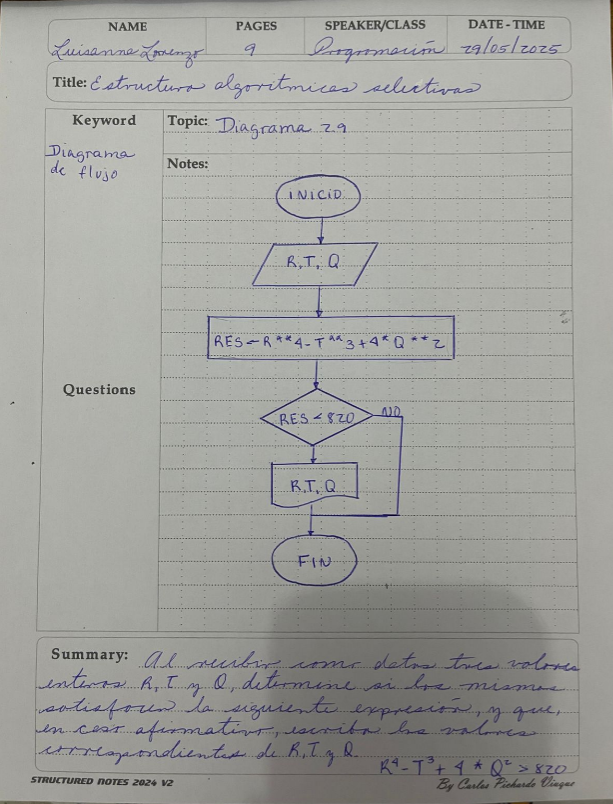 NAME PAGES SPEAKER/CLASS DATE - TIME
Luisanna Lorenzo 9 Programación 29/05/2025
Title: Estructura algoritmicas selectivas
Keyword
Topic: Diagrama 2.9
Diagrama
de flujo
Notes:
INICIO
R, T, Q
RES ← R**4 - T**3 + 4*Q**2
Questions
RES < 820
NO
R, T, Q
FIN
Summary: Al recibir como datos tres valores
enteros R, T y Q, determine si los mismos
satisfacen la siguiente expresión, y que,
en caso afirmativo, escriba los valores
correspondientes de R, T y Q.
R⁴ - T³ + 4 * Q² > 820
STRUCTURED NOTES 2024 V2
By Carlos Pichardo Viuque